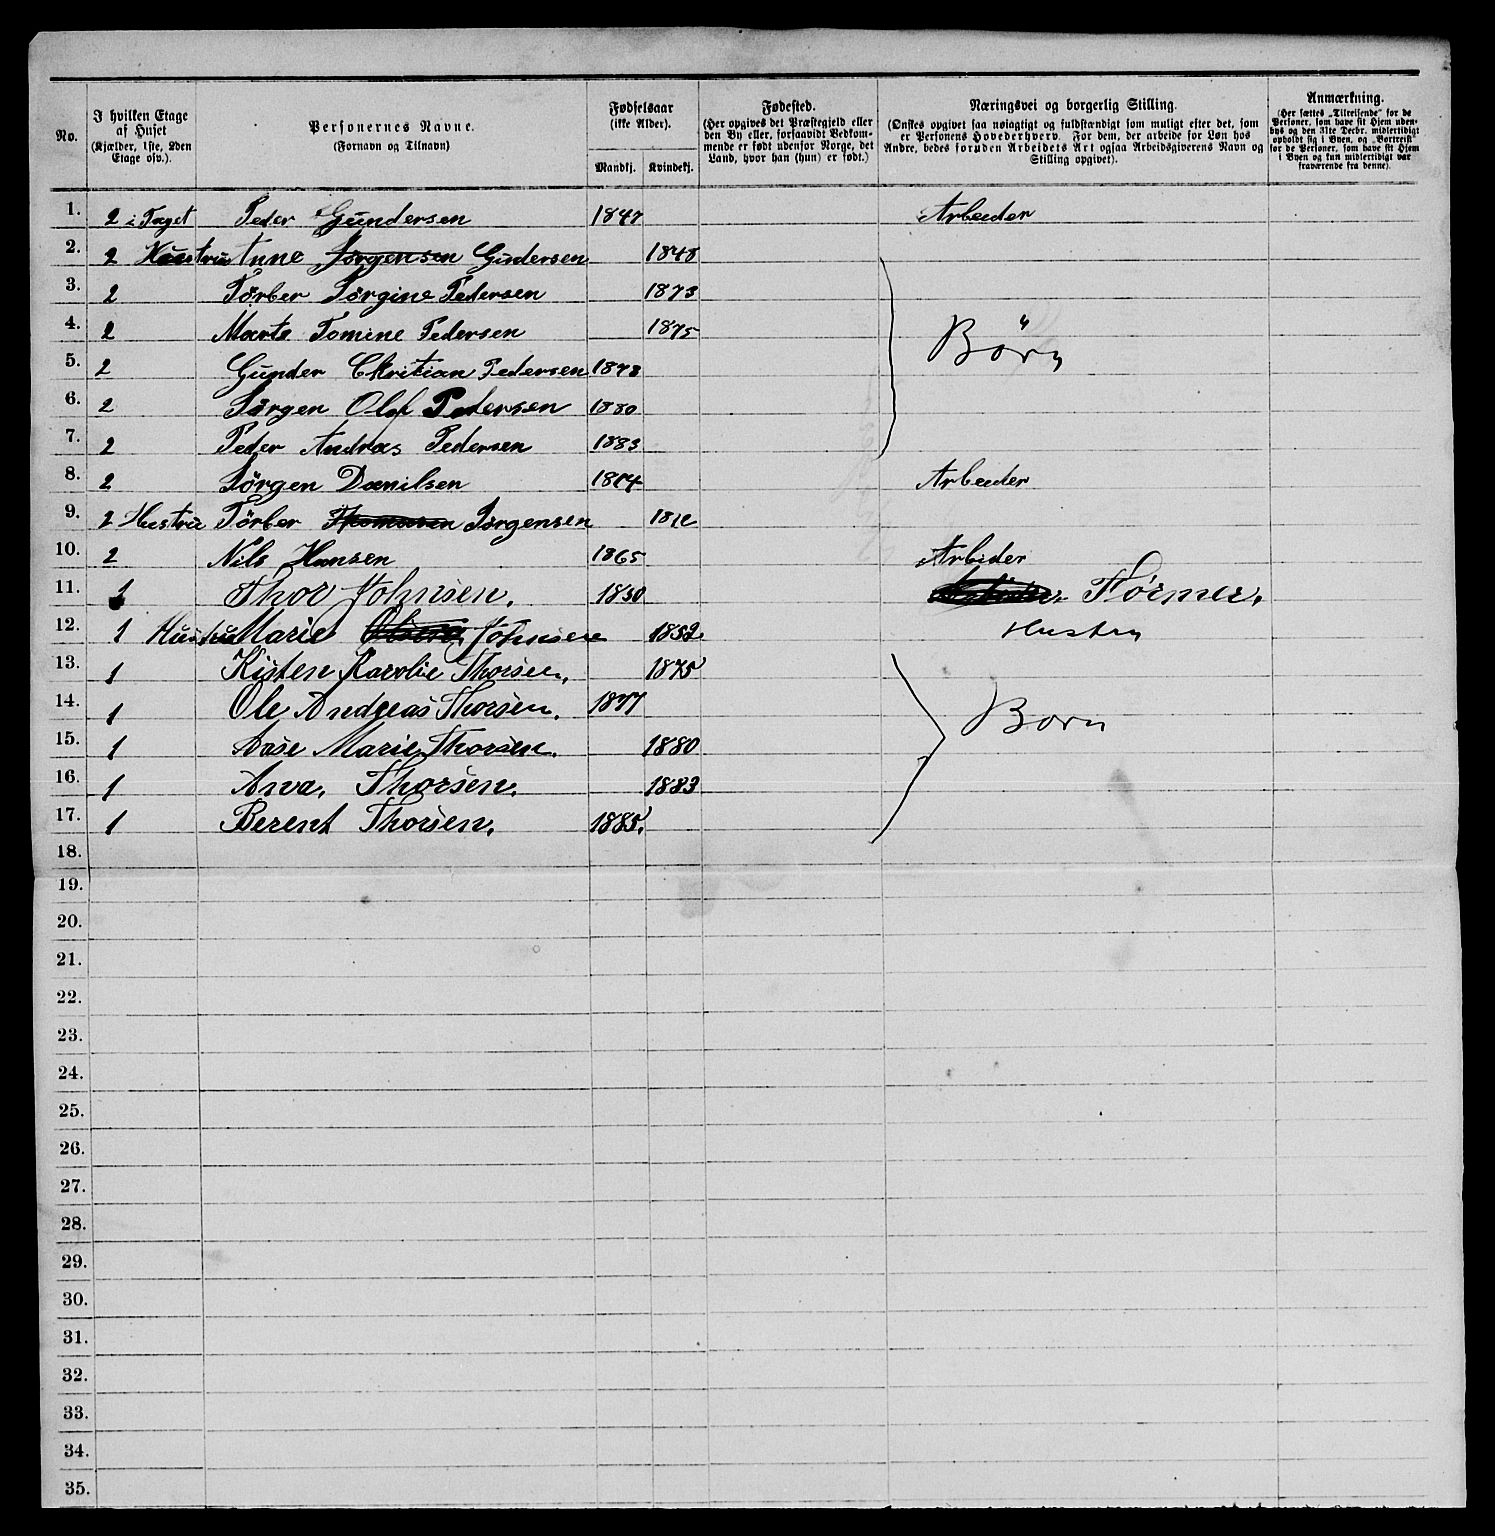 No.
I hvilken Etage af Huset (Kjælder, 1ste, 2den Etage osv.).
Personernes Navne. (Fornavn og Tilnavn)
Fødselsaar (ikke Alder).
Mandkj. Kvindekj.
Fødested. (Her opgives det Præstegjeld eller den By eller, forsaavidt Vedkommende er født udenfor Norge, det Land, hvor han (hun) er født.)
Næringsvei og borgerlig Stilling. (Ønskes opgivet saa nøiagtigt og fuldstændigt som muligt efter det, som er Personens Hovederhverv. For dem, der arbeide for Løn hos Andre, bedes foruden Arbeidets Art ogsaa Arbeidsgiverens Navn og Stilling opgivet).
Anmærkning. (Her sættes „Tilreisende“ for de Personer, som have sit Hjem udenbys og den 31te Decbr. midlertidigt opholdt sig i Byen, og „Bortreist“ for de Personer, som have sit Hjem i Byen og kun midlertidigt var fraværende fra denne).
1. 2 i Taget Peder Gundersen 1847 Arbeider
2. 2 Hustru Anne Jørgensen Gundersen 1848
3. 2 Tørber Jørgine Pedersen 1873
4. 2 Marte Tomine Pedersen 1875 Børn
5. 2 Gunder Chritian Pedersen 1878
6. 2 Jørgen Olaf Pedersen 1880
7. 2 Peder Andras Pedersen 1883
8. 2 Jørgen Danilsen 1814 Arbeider
9. 2 Hustru Tørber Thomasen Jørgensen
10. 2 Nils Hansen 1865 Arbider
11. 1 Thor Johnsen. 1850
12. 1 Hustru Marie Johnsen 1852. Hustru
13. 1 Kisten Karolie Thorsen. 1875
14. 1 Ole Andreas Thorsen. 1877 Børn
15. 1 Aase Marie Thorsen. 1880
16. 1 Anna. Thorsen. 1883
17. 1 Berent Thorsen. 1885.
18.
19.
20.
21.
22.
23.
24.
25.
26.
27.
28.
29.
30.
31.
32.
33.
34.
35.